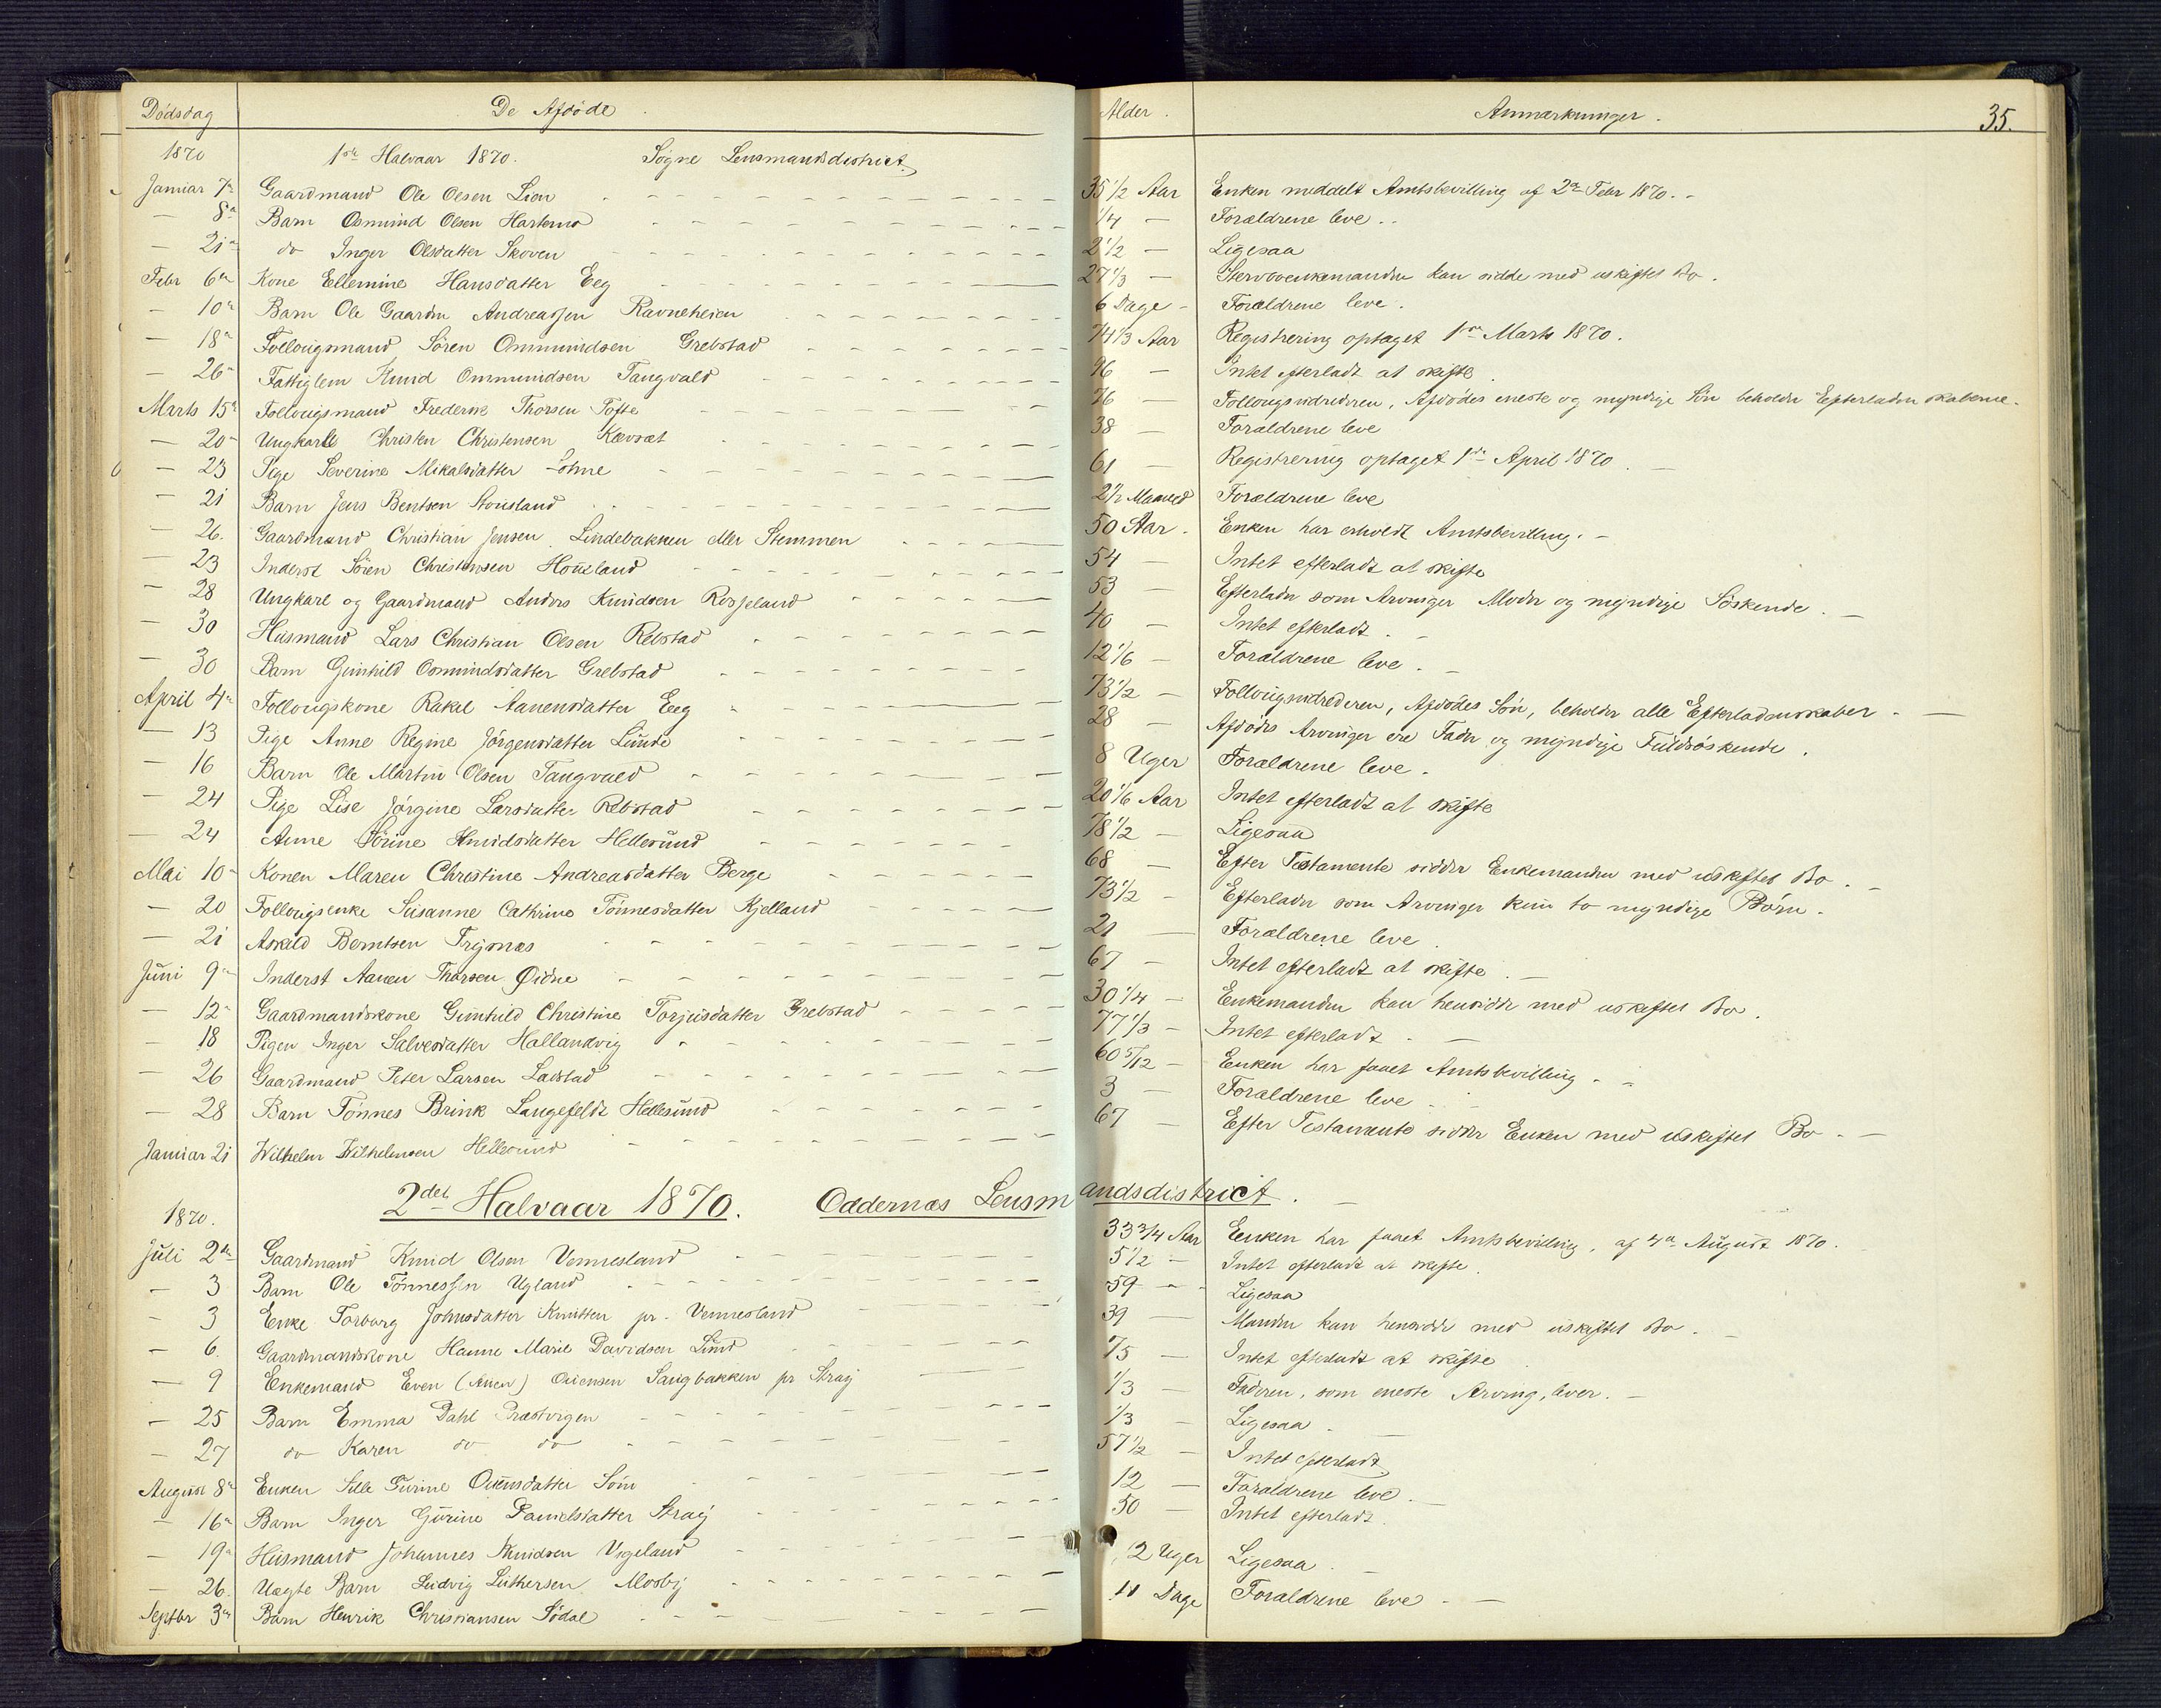 Dödsdag De Afdöde. Alder. Anmærkninger. 35.
1870 1ste Halvaar 1870. Søgne Lensmandsdistrict.
Januar 7de Gaardmand Ole Olsen Lian 35 1/2 Aar Enken meddelt Amtsbevilling af 2de Febr 1870.
— 8de Barn Osmund Olsen 1/4 — Forældrene leve.
— 21de do Inger Olsdatter Skoven 2 1/2 — Ligesaa
Febr 6te Kone Ellemine Hansdatter Eeg 27 1/3 — kan sidde med uskiftet Bo.
— 10de Barn Ole Andreassen Ravneheien 6 Dage — Forældrene leve.
— 18de Follougsmand Sören Ommundsen Grebstad 74 1/3 Aar Registrering optaget 1ste Marts 1870.
— 26de Fattiglem Knud Ommundsen Tangvald 96 — Intet efterladt at skifte.
Marts 15de Follougsmand Frederik Thorsen Tofte 76 — Follougsyderen, Afdödes eneste og myndige Sön beholder Efterladenskaberne.
— 20de Ungkarl Christen Christensen 38 — Forældrene leve
— 23 Pige Severine Mikalsdatter Lohne 61 — Registrering optaget 1ste April 1870.
— 21 Barn Jens Bentsen Stousland 2 1/2 Maaned Forældrene leve
— 26. Gaardmand Christian Jensen Lindebakken eller Stemmen 50 Aar. Enken har erholdt Amtsbevilling.
— 23 Inderst Sören Christensen Houseland 54 — Intet efterladt at skifte
— 28 Ungkarl og Gaardmand Anders Knudsen Rosseland 53 — Efterlader som Arvinger Moder og myndige Söskende.
— 30 Husmand Lars Christian Olsen Rebstad 40 — Intet efterladt.
— 30 Barn Gunhild Osmundsdatter Grebstad 12 1/6 — Forældrene leve.
April 4de Follougskone Rakel Aanensdatter Eeg 73 1/2 — Follougsyderen, Afdödes Sön, beholder alle Efterladenskaber.
— 13 Pige Anne Regine Jörgensdatter Lunde 28 — Afdödes Arvinger ere Fader og myndige Fuldsöskende.
— 16 Barn Ole Martin Olsen Tangvald 8 Uger Forældrene leve.
— 24 Pige Lise Jörgine Larsdatter Rebstad 20 1/6 Aar Intet efterladt at skifte
— 24 Anne Sörine Knudsdatter Hellesund 78 1/2 — Ligesaa
Mai 10de Konen Maren Christine Andreasdatter Berge 68 — Efter Testamente sidder Enkemanden med uskiftet Bo.
— 20 Follougsenke Susanne Cathrine Tönnesdatter Kjelland 73 1/2 — Efterlader som Arvinger kun to myndige Börn.
— 21 Askild Berntsen Trysnes 21 — Forældrene leve.
Juni 9de Inderst Aanen Thorsen Øidne 67 — Intet efterladt at skifte.
— 12te Gaardmandskone Gunhild Christine Torjusdatter Grebstad 30 1/4 — Enkemanden kan hensidde med uskiftet Bo.
— 18 Pigen Inger Salvesdatter Hallandvig 77 1/3 — Intet efterladt.
— 26 Gaardmand Peter Larsen 60 5/12 — Enken har faaet Amtsbevilling.
— 28 Barn Tönnes Brink Langefeldt Hellesund 3 — Forældrene leve.
Januar 21 Wilhelm Wilhelmsen Hellesund 67 — Efter Testamente sidder Enken med uskiftet Bo.
1870. 2det Halvaar 1870. Oddernæs Lensmandsdistrict.
Juli 2den Gaardmand Knud Olsen Vennesland 33 3/4 Aar Enken har faaet Amtsbevilling, af 4de August 1870.
— 3 Barn Ole Tönnessen Ugland 5 1/2 — Intet efterladt at skifte.
— 3 Enke Torborg Johnsdatter Knutten pr. Vennesland 59 — Ligesaa
— 6. Gaardmandskone Hanne Marie Davidsen Lund 39 — Manden kan hensidde med uskiftet Bo.
— 9 Enkemand Even (Aaen) Sangbakken pr Stray 75 — Intet efterladt at skifte.
— 25 Barn Emma Dahl Præstvigen 1/3 — Faderen, som eneste Arving, lever.
— 27 do Karen do do 1/3 — Ligesaa.
August 8de Enken Sille Gurine Ouensdatter Söm 57 1/2 — Intet efterladt
— 16de Barn Inger Gurine Danielsdatter Stray 12 — Forældrene leve.
— 19de Husmand Johannes Knudsen Vigeland 50 — Intet efterladt.
— 26. Uægte Barn Ludvig Luthersen Mosby 12 Uger Ligesaa.
Septbr 3de Barn Henrik Christiansen Södal 11 Dage Forældrene leve.